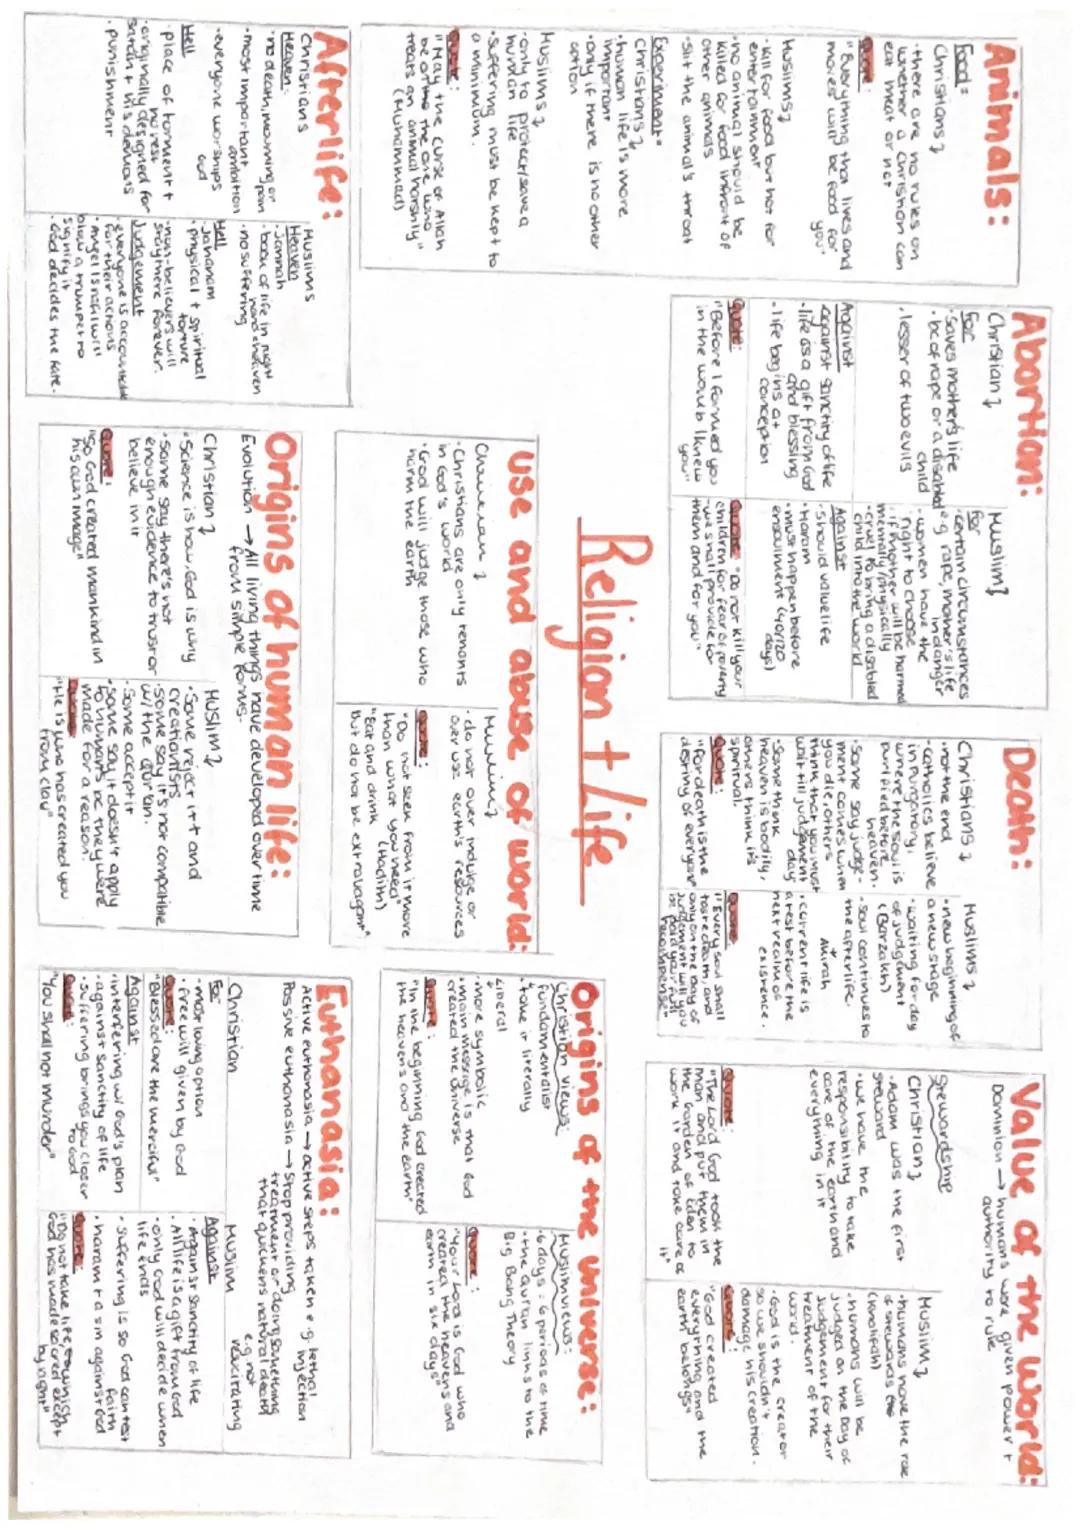 Religion + Life
Animals:
Food:
Christians ↴
• there are no rules on
whether a Christian can
eat meat or not
Quote:
"Everything that lives and
moves will be food for
you"
Muslims ↴
• kill for food but not for
entertainment
• no animal should be
killed for food infront of
other animals
• slit the animal's throat
Experiment:
Christians ↴
• human life is more
important
• only if there is no other
option
Muslims ↴
• only to protect/save a
human life
• suffering must be kept to
a minimum.
Quote:
"May the curse of Allah
be on the one who
treats an animal harshly"
(Muhammad)
Abortion:
Christian ↴
For
• saves mother's life
• bc of rape or a disabled
child
• lesser of two evils
Against
• against sanctity of life
• life as a gift from God
and blessing
• life begins at
conception
Quote:
"Before I formed you
in the womb I knew
you"
Muslim ↴
For
• certain circumstances
e.g rape, mother's life
in danger
• women have the
right to choose
• if mother will be harmed
mentally/physically
• cruel to bring a disabled
child into the world
Against
• should value life
• Haram
• must happen before
ensoulment (40/120
days)
Quote: "Do not kill your
children for fear of poverty
- we shall provide for
them and for you"
Death:
Christians ↴
• not the end
• catholics believe
in Purgatory,
where the soul is
purified before
heaven.
• some say judge-
ment comes when
you die, others
think that you must
wait till judgement
day
• some think
heaven is bodily,
others think it's
spiritual.
Quote:
"For death is the
destiny of everyone"
Muslims ↴
• new beginning of
a new stage
• waiting for day
of judgment
(Barzakh)
• soul continues to
the afterlife.
Akhirah
• current life is
a test before the
next realm of
existence.
Quote:
"Every soul shall
taste death, and
only on the Day of
Judgement will you
be paid your full
recompense"
Value of the world:
Dominion → humans were given power +
authority to rule
Stewardship
Christian ↴
• Adam was the first
steward
• we have the
responsibility to take
care of the earth and
everything in it
Quote:
"The Lord God took the
man and put them in
the Garden of Eden to
work it and take care of
it"
Muslim ↴
• humans have the role
of stewards
(Khalifah)
• humans will be
judged on the Day of
Judgement for their
treatment of the
world.
• God is the creator
so we shouldn't
damage his creation.
Quote:
"God created
everything and the
earth belongs"
Use and abuse of world:
Christian ↴
• Christians are only tenants
in God's world
• God will judge those who
harm the earth
Muslim ↴
• do not over indulge or
over use earth's resources
Quote:
"Do not seek from it more
than what you need"
(Hadith)
"Eat and drink
but do not be extravagant"
Origins of the universe:
Christian views:
Fundamentalist
• take it literally
Liberal
• more symbolic
• main message is that God
created the universe
Quote:
"In the beginning God created
the heavens and the earth"
Muslim views:
• 6 days = 6 periods of time
• the Quran links to the
Big Bang Theory
Quote:
"Your Lord is God who
created the heavens and
earth in six days"
Afterlife:
Christians
Heaven:
• no death, mourning or
pain
• most important
ambition
• everyone worships
God
Hell
• place of torment +
no rest
• originally designed for
Satan + his demons
• punishment
Muslims
Heaven
• Jannah
• book of life in right
hand = heaven
• no suffering
Hell
• Jahanam
• physical + spiritual
torture
• non-believers will
stay there forever.
Judgement
• everyone is accountable
for their actions
• Angel Israfil will
blow a trumpet to
signify it
• God decides the fate.
Origins of human life:
Evolution → All living things have developed over time
from simple forms.
Christian ↴
• Science is how, God is why
• Some say there's not
enough evidence to trust or
believe in it
Quote:
"So God created mankind in
his own image"
Muslim ↴
• Some reject it + and
creationists
• some say it's not compatible
w/ the Qur'an.
• some accept it
• some say it doesn't apply
to humans bc they were
made for a reason.
"He is who has created you
from clay"
Euthanasia:
Active euthanasia → active steps taken e.g. lethal
injection
Passive euthanasia → Stop providing
treatment or doing something
that quickens natural death
e.g. not
resuscitating
Christian
For
• most loving option
• free will given by God
Quote:
"Blessed are the merciful"
Against
• interfering w/ God's plan
• against sanctity of life
• suffering brings you closer
to God
Quote:
"You shall not murder"
Muslim
Against
• Against sanctity of life
• All life is a gift from God
• only God will decide when
life ends
• suffering is so God can test
faith
• haram + a sin against God
Quote:
"Do not take life, which
God has made sacred except
by right"